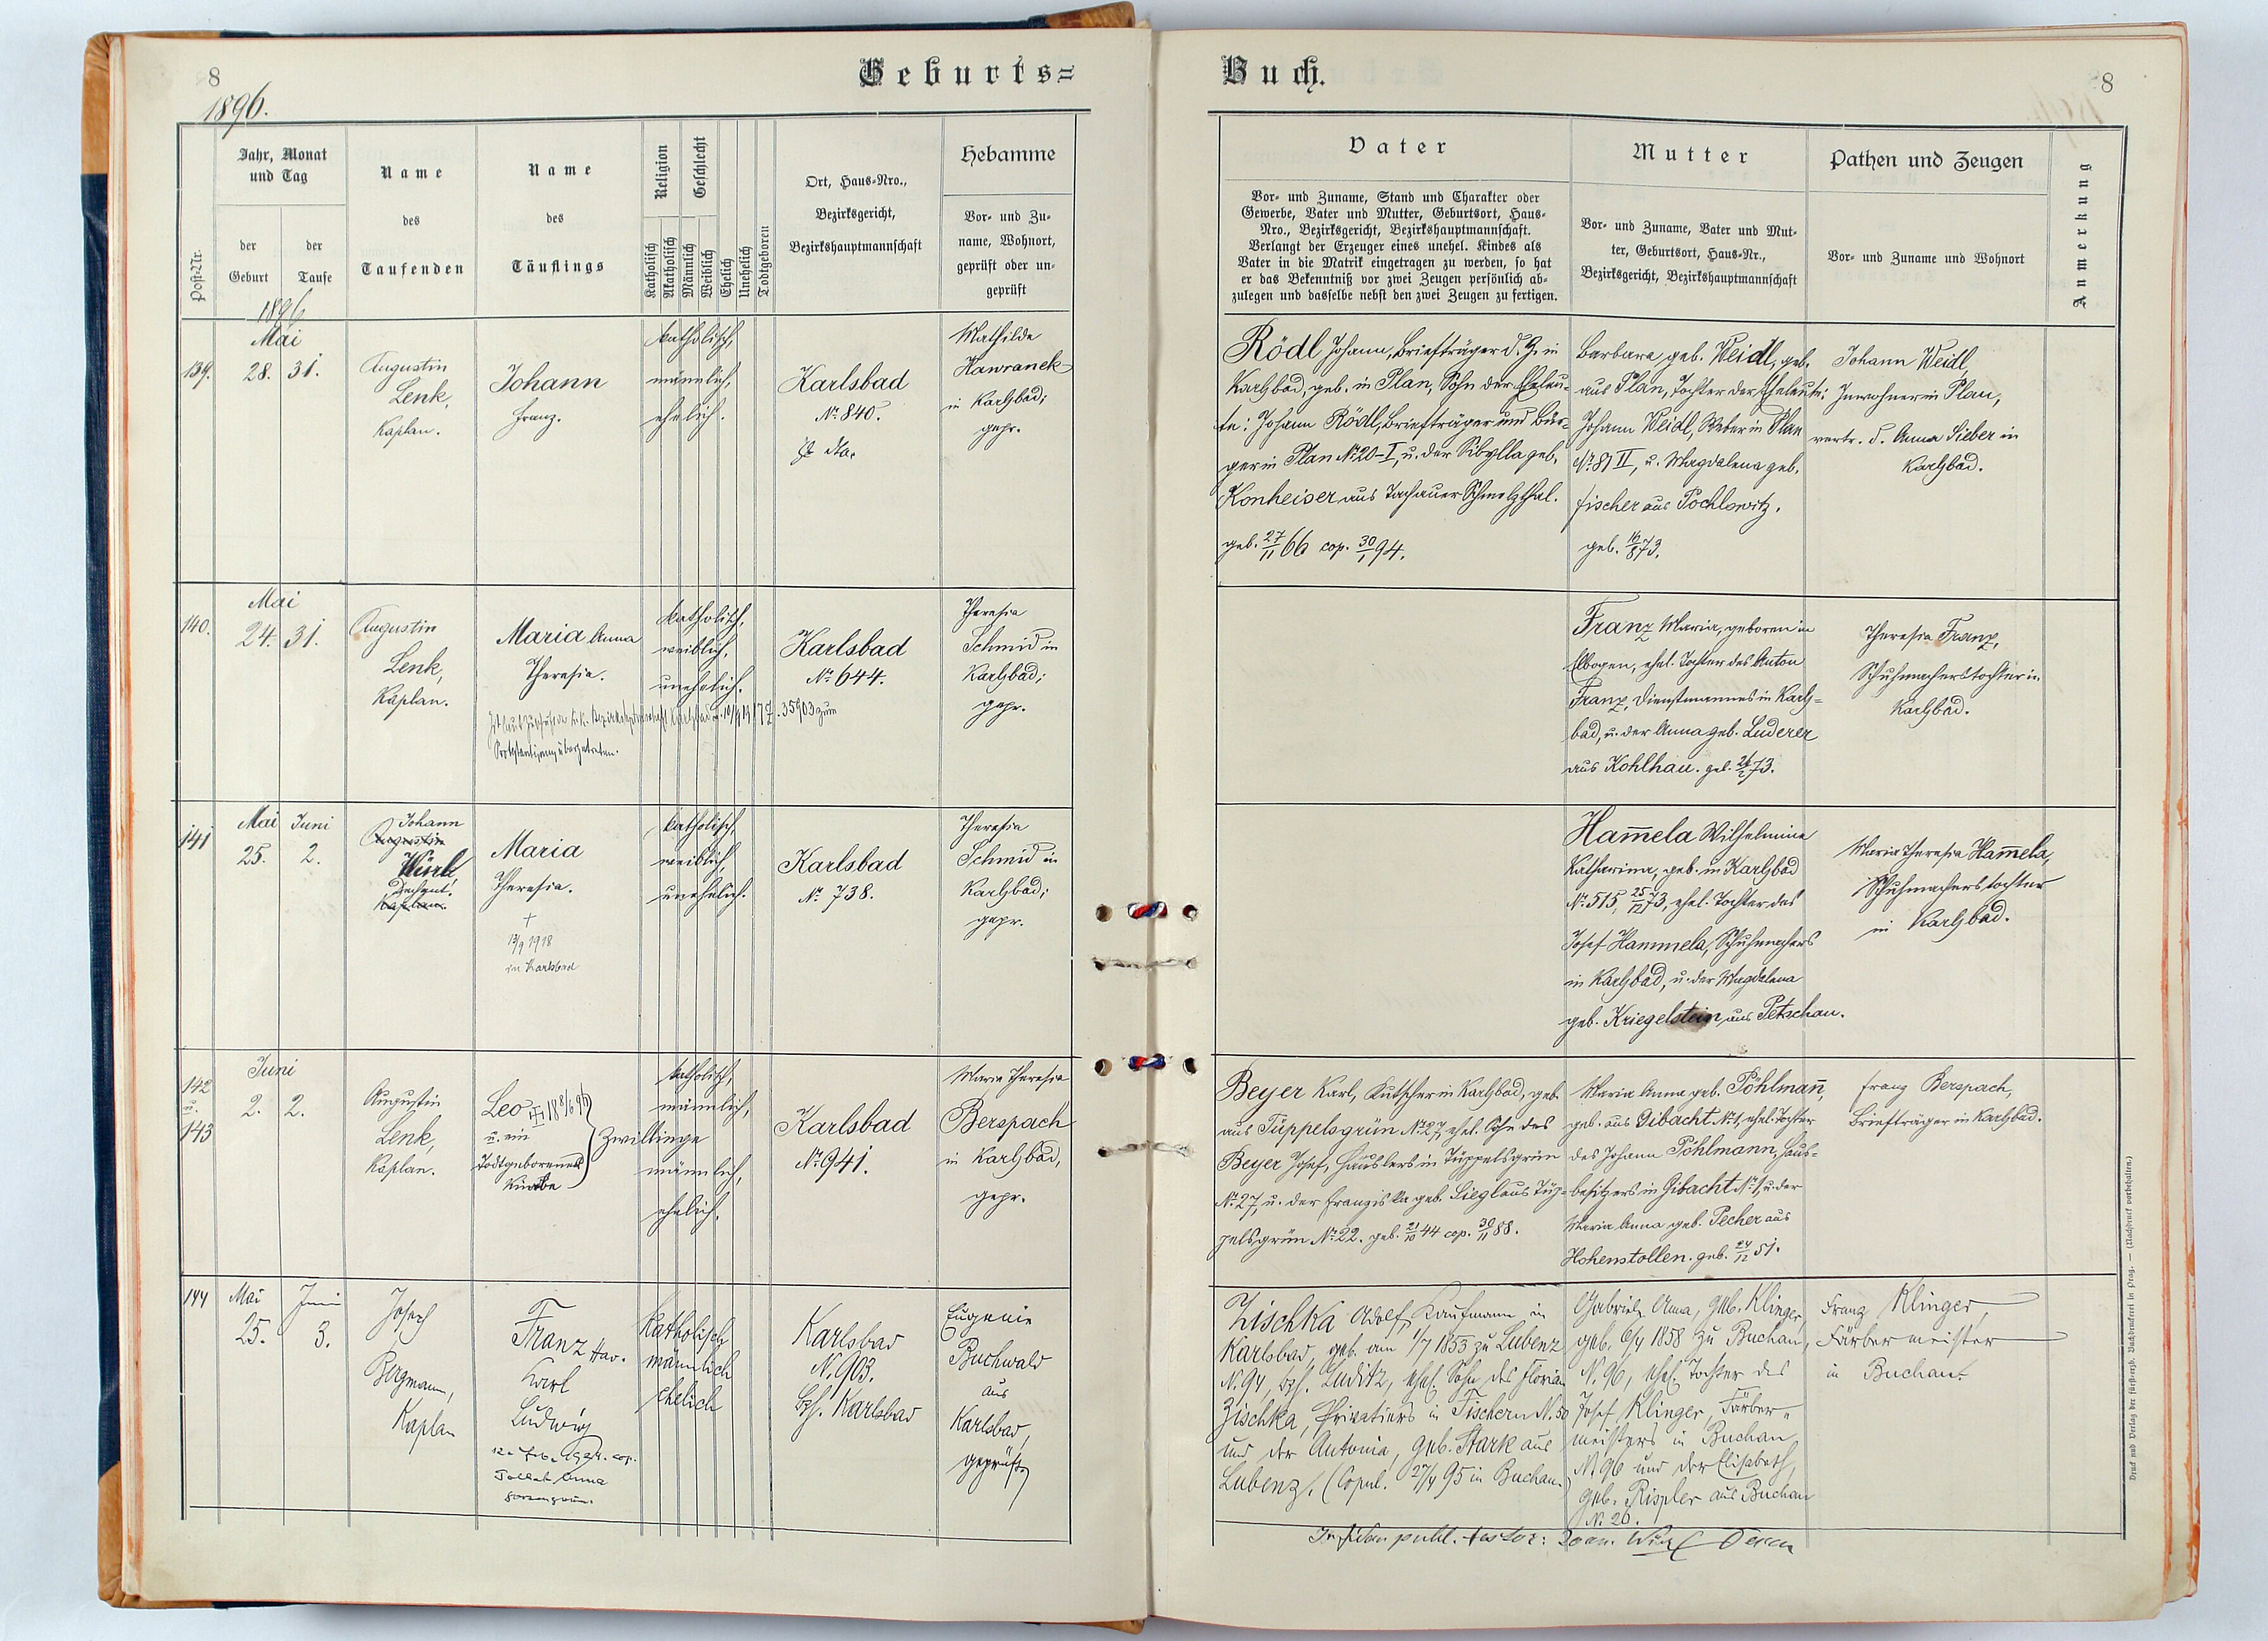 8
Geburts=
1896.
Post-Nr.
Jahr, Monat
und Tag
der
Geburt
der
Taufe
Name
des
Taufenden
Name
des
Täuflings
Religion
Geschlecht
Katholisch
Akatholisch
Männlich
Weiblich
Ehelich
Unehelich
Todtgeboren
Ort, Haus-Nro.,
Bezirksgericht,
Bezirkshauptmannschaft
Hebamme
Vor- und Zu-
name, Wohnort,
geprüft oder un-
geprüft
1896
139.
Mai
28. 31.
Augustin
Lenk,
Kaplan.
Johann
Franz.
katholisch,
männlich,
ehelich.
Karlsbad
No 840.
Mathilde
Hawranek
in Karlsbad;
gepr.
140.
Mai
24. 31.
Augustin
Lenk,
Kaplan.
Maria Anna
Theresia.
katholisch,
weiblich,
unehelich.
Karlsbad
No 644.
Theresia
Schmid in
Karlsbad;
gepr.
35903 zum
Protestantismus übergetreten.
141
Mai Juni
25. 2.
Johann
Augustin
Würl,
Dechant.
Kaplan.
Maria
Theresia.
+
13/9 1918
in Karlsbad
katholisch,
weiblich,
unehelich.
Karlsbad
No 738.
Theresia
Schmid in
Karlsbad;
gepr.
142
u.
143
Juni
2. 2.
Augustin
Lenk,
Kaplan.
Leo
u. ein
Todtgeborener
Knabe
Zwillinge
katholisch,
männlich,
männlich,
ehelich.
Karlsbad
No 941.
Maria Theresia
Berspach
in Karlsbad,
gepr.
144
Mai Juni
25. 3.
Josef
Bergmann,
Kaplan
Franz Xav.
Karl
Ludwig
1924. cop.
Anna
katholisch
männlich
ehelich
Karlsbad
N. 903.
Bzh. Karlsbad
Eugenie
Buchwald
aus
Karlsbad,
geprüft
Buch.
8
Vater
Vor- und Zuname, Stand und Charakter oder
Gewerbe, Vater und Mutter, Geburtsort, Haus-
Nro., Bezirksgericht, Bezirkshauptmannschaft.
Verlangt der Erzeuger eines unehel. Kindes als
Vater in die Matrik eingetragen zu werden, so hat
er das Bekenntniß vor zwei Zeugen persönlich ab-
zulegen und dasselbe nebst den zwei Zeugen zu fertigen.
Mutter
Vor- und Zuname, Vater und Mut-
ter, Geburtsort, Haus-Nr.,
Bezirksgericht, Bezirkshauptmannschaft
Pathen und Zeugen
Vor- und Zuname und Wohnort
Anmerkung
Rödl Johann, Briefträger d. Z. in
Karlsbad, geb. in Plan, Sohn der Eheleu-
te: Johann Rödl, Briefträger und Bür-
ger in Plan No 20-I, u. der Sibylla geb.
Konheiser aus Tachauer Schmelzthal.
geb. 27/11 66 cop. 30/1 94.
Barbara geb. Weidl, geb.
aus Plan, Tochter der Eheleute:
Johann Weidl, Weber in Plan
No 81 II, u. Magdalena geb.
Fischer aus Pochlowitz.
geb. 16/8 73.
Johann Weidl,
Inwohner in Plan,
vertr. d. Anna Sieber in
Karlsbad.
Franz Maria, geboren in
Elbogen, ehel. Tochter des Anton
Franz, Dienstmannes in Karls-
bad, u. der Anna geb. Luderer
aus Kohlhau. geb. 73.
Theresia Franz,
Schuhmacherstochter in
Karlsbad.
Ham̄ela Wilhelmine
Katharina, geb. in Karlsbad
No 515, 25/12 73, ehel. Tochter des
Josef Hammela, Schuhmachers
in Karlsbad, u. der Magdalena
geb. Kriegelstein aus Petschau.
Maria Theresia Ham̄ela,
Schuhmacherstochter
in Karlsbad.
Beyer Karl, Kutscher in Karlsbad, geb.
aus Tüppelsgrün No 27, ehel. Sohn des
Beyer Josef, Häuslers in Tüppelsgrün
No 27, u. der Franziska geb. Siegl aus Tüp-
pelsgrün No 22. geb. 21/10 44 cop. 30/11 88.
Maria Anna geb. Pöhlman̄,
geb. aus Gibacht No 1, ehel. Tochter
des Johann Pöhlmann, Haus-
besitzers in Gibacht No 1, u. der
Maria Anna geb. Pecher aus
Hohenstollen. geb. 24/12 51.
Franz Berspach,
Briefträger in Karlsbad.
Zischka Adolf, Kaufmann in
Karlsbad, geb. am 1/7 1853 zu Lubenz
N. 94, Bzh. Luditz, ehel. Sohn des Florian
Zischka, Privatiers in Fischern N. 50
und der Antonia, geb. Stark aus
Lubenz. (Copul. 27/4 95 in Buchau.)
Gabriele Anna, geb. Klinger,
geb. 6/4 1858 zu Buchau,
N. 96, ehel. Tochter des
Josef Klinger, Färber-
meisters in Buchau
N. 96 und der Elisabeth,
geb. Rispler aus Buchau
N. 26.
Franz Klinger,
Färbermeister
in Buchau.
In fidem publ. testor: Joan. Würl
Druck und Verlag der fürsterzb. Buchdruckerei in Prag. — (Nachdruck vorbehalten.)